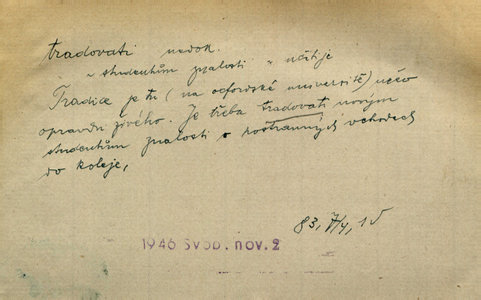 tradovati nedok.
„ studentům znalosti „ učiti je
Tradice je tu (na oxfordské universitě) něco
opravdu živého. Je třeba tradovati novým
studentům znalosti o postranných vchodech
do koleje,
83, 7/4, 15
1946 Svob. nov. 2